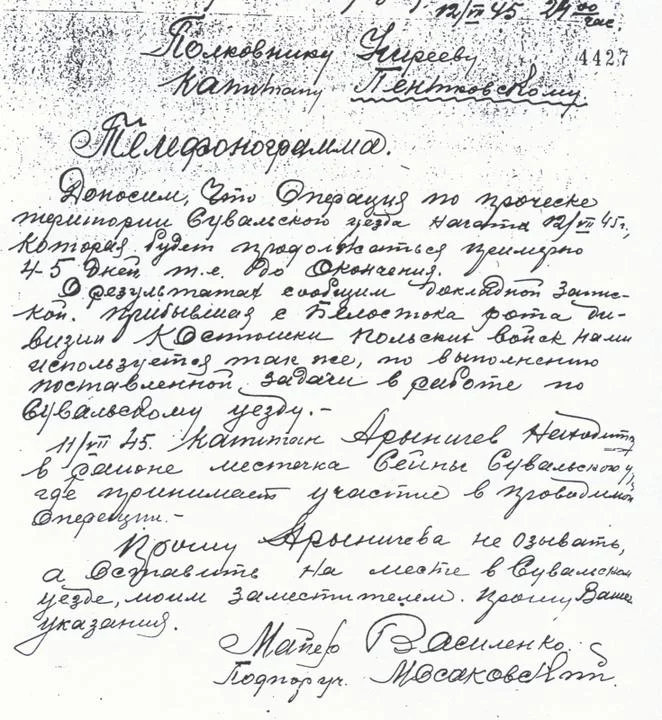 12/VII 45 24 00 час.
Полковнику Кирееву 4427
капитану Пентковскому
Телефонограмма.
Доносим, что операция по проческе
територии Сувальского уезда начата 12/VII 45 г,
которая будет продолжаться примерно
4-5 дней т.е. до окончения.
О результатах сообщим докладной запис-
кой. Прибывшая с Белостока рота ди-
визии Костюшки Польских войск нами
используется так же, по выполнению
поставленной задачи в работе по
Сувальскому уезду.-
11/VII 45. капитан Арыничев находится
в районе местечка Сейны Сувальского у,
где принимает участие в проводимой
операции.-
Прошу Арыничева не озывать,
а оставить на месте в Сувалском
уезде, моим заместителем. Прошу Ваше
указания.
Маиер Василенко.
Подпоруч. Мосаковский.